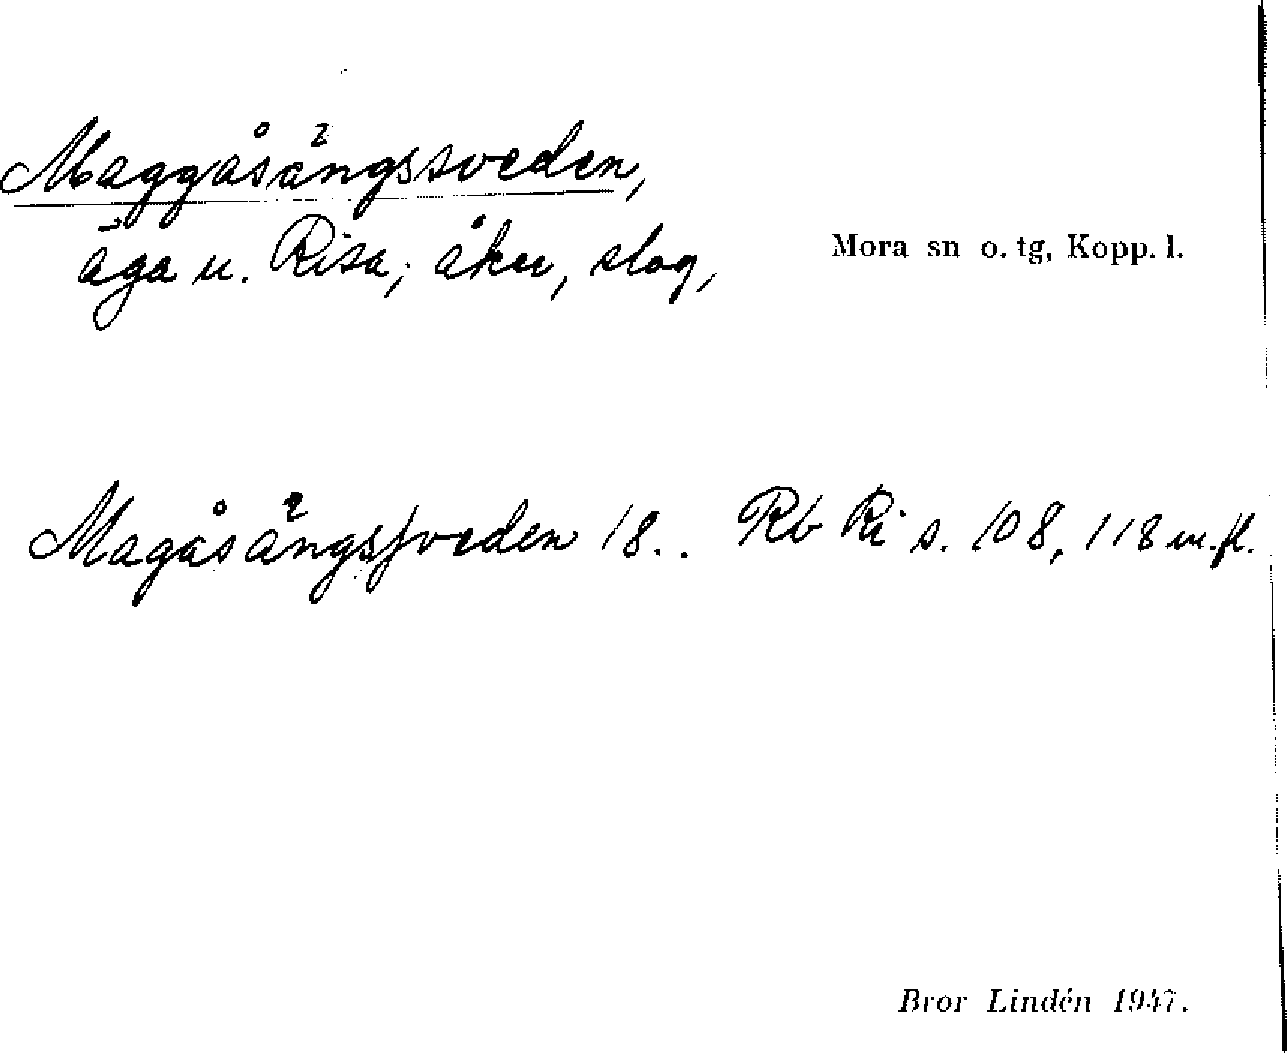 Maggåsängssveden,
äga u. Risa; åker, slog,
Mora sn o. tg, Kopp. l.
Magåsängssveden 18.. Rb Ri s. 108, 118 m.fl.
Bror Lindén 1947.